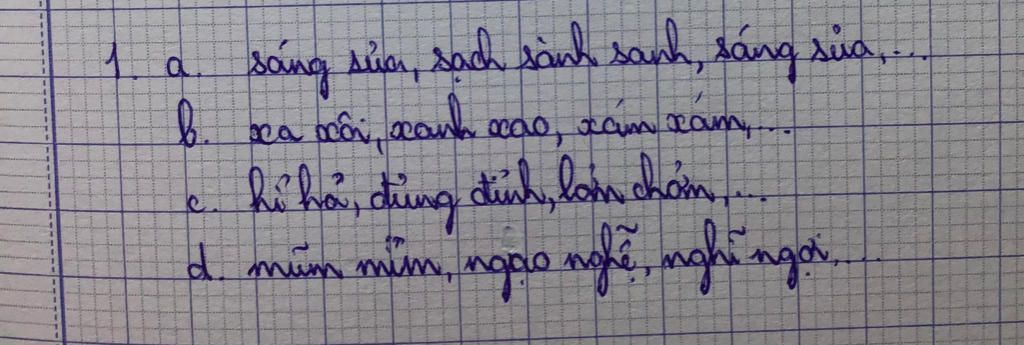 1. a. sáng sủa, sạch sành sanh, sáng sủa,...
b. xa xôi, xanh xao, xám xám,...
c. hí hả, đủng đỉnh, lởn chởn,...
d. mũm mĩm, ngạo nghễ, nghĩ ngợi,...